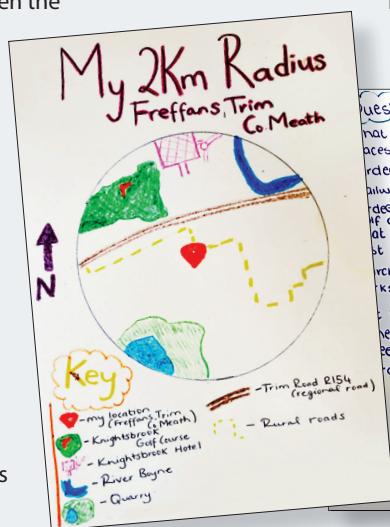 en the
My 2Km Radius
Freffans, Trim
Co. Meath
N
Key
- my location
(Freffans, Trim
Co Meath)
- Knightsbrook
Golf Course
- Knightsbrook Hotel
- River Boyne
- Quarry
- Trim Road R154
(regional road)
- Rural roads
s